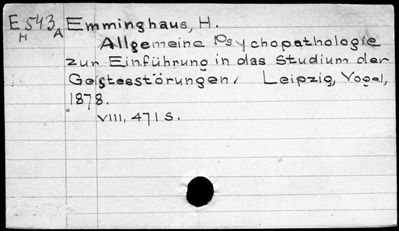 E 543 Emminghaus, H.
H A
Allgemeine Psychopathologie
zur Einführung in das Studium der
Geistesstörungen. Leipzig, Vogel,
1878.
VIII, 471 S.